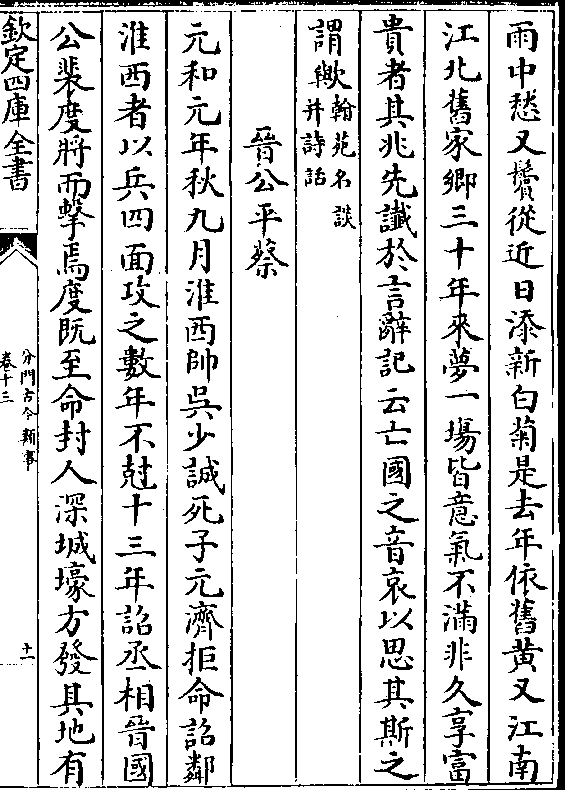 雨中愁又鬢從近日添新白菊是去年依舊黄又江南
江北舊家鄉三十年來夢一場皆意氣不滿非久享富
貴者其兆先䜟於言辭記云亡國之音哀以思其斯之
謂歟翰苑名談并詩話
晉公平蔡
元和元年秋九月淮西帥吳少誠死子元濟拒命詔鄰
淮西者以兵四面攻之數年不尅十三年詔丞相晉國
公裴度將而擊焉度既至命封人深城壕方發其地有
欽定四庫全書
分門古今類事
卷十三
十一